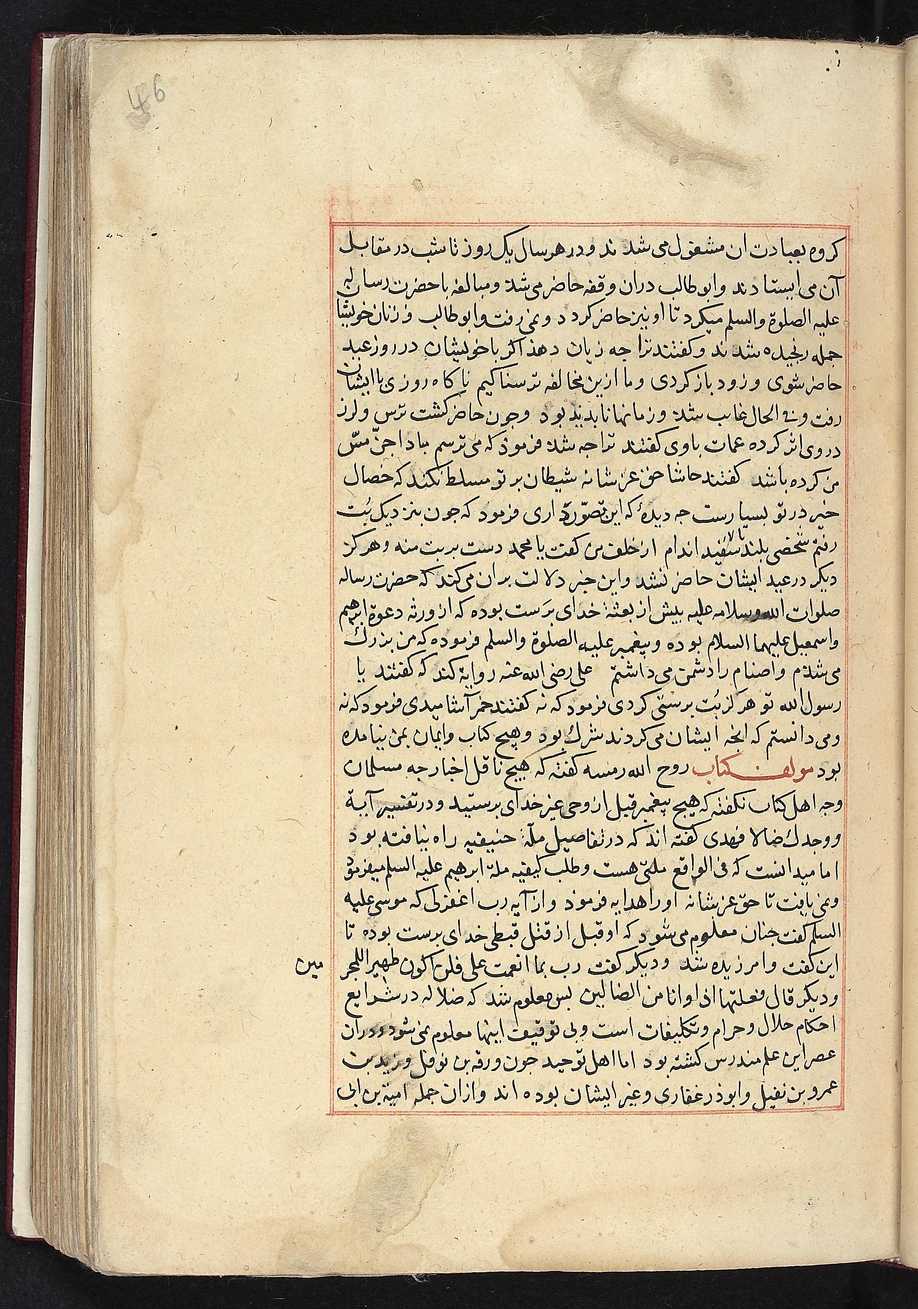 46
کروه بعبادت ان مشغول می شدند و در هر سال یک روز تا شب در مقابل
آن می ایستادند و ابو طالب دران وقفه حاضر می شد و مبالغه با حضرت رساله
علیه الصلوة والسلم میکرد تا او نیز حاضر کردد و نمی رفت و ابو طالب و زنان خویشان
جمله رنجیده شدند و کفتند ترا چه زیان دهذ اکر با خویشان در روز عید
حاضر شوی و زود باز کردی و ما ازین مخالفه ترسناکیم ناکاه روزی با ایشان
رفت و فی الحال غایب شد و زمانها ناپدید بود و چون حاضر کشت ترس و لرز
در وی اثر کرده عمات با وی کفتند ترا چه شد فرمود که می ترسم مبادا جن مس
من کرده باشد کفتند حاشا حق عز شانه شیطان بر تو مسلط نکند که خصال
خیر در تو بسیارست چه دیدۀ که این تصور داری فرمود که چون بنزدیک بت
رفتم شخصی بلند سفید اندام از خلف من کفت یا محمد دست بر بت منه و هرکز
دیکر در عید ایشان حاضر نشد و این خبر دلالت بران می کند که حضرت رساله
صلوات الله وسلامه علیه پیش از بعثة خدای پرست بوده که از ورثه دعوة ابرهیم
و اسمعیل علیهما السلام بوده و پیغمبر علیه الصلوة والسلم فرموده که من بزرک
می شدم و اصنام را دشمن می داشتم علی رضی الله عنه روایة کند که کفتند یا
رسول الله تو هرکز بت پرستی کردی فرمود که نه کفتند خمر آشامیدی فرمود که نه
و می دانستم که انچه ایشان می کردند شرک بود و هیچ کتاب و ایمان بمن نیامده
بود مولف کتاب روح الله رمسه کفته که هیچ ناقل اخبار چه مسلمان
و چه اهل کتاب نکفته که هیچ پیغمبر قبل از وحی غیر خدای پرستید و در تفسیر آیة
و وجدک ضالا فهدی کفته اند که در تفاصیل ملة حنیفیه راه نیافته بود
اما میدانست که فی الواقع ملتی هست و طلب کیفیه ملة ابرهیم علیه السلم میفرمود
و نمی یافت تا حق عز شانه او را هدایه فرمود و از آیه رب اغفر لی که موسی علیه
السلم کفت چنان معلوم می شود که او قبل از قتل قبطی خدای پرست بوده تا
این کفت و امرزیده شد و دیکر کفت رب بما انعمت علی فلن اکون ظهیرا للمجر
مین
و دیکر قال فعلتها اذا وانا من الضالین پس معلوم شد که ضلاله در شرایع
احکام حلال و حرام و تکلیفات است و بی توقیف اینها معلوم نمی شود و دران
عصر این علم مندرس کشته بود اما اهل توحید چون ورقه بن نوفل و زید بن
عمرو بن نفیل و ابوذر غفاری و غیر ایشان بوده اند و ازان جمله امیة بن ابی